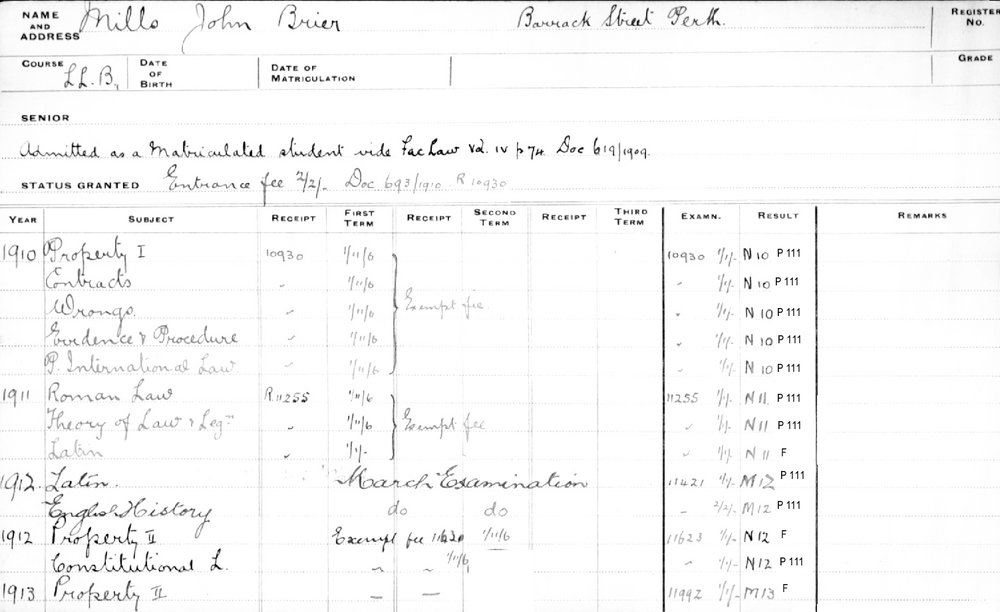 NAME AND ADDRESS Mills John Brier Barrack Street Perth. REGISTER No.
COURSE LL.B. DATE OF BIRTH DATE OF MATRICULATION GRADE
SENIOR
Admitted as a Matriculated student vide Fac Law Vol. IV p 74. Doc 619/1909.
STATUS GRANTED Entrance fee 2/2/- Doc 693/1910 R 10930
YEAR SUBJECT RECEIPT FIRST TERM RECEIPT SECOND TERM RECEIPT THIRD TERM EXAMN. RESULT REMARKS
1910 Property I 10930 1/11/6 10930 1/1/- N 10 P 111
Contracts " 1/11/6 " 1/1/- N 10 P 111
Wrongs. " 1/11/6 Exempt fee " 1/1/- N 10 P 111
Evidence & Procedure " 1/11/6 " 1/1/- N 10 P 111
P. International Law " 1/11/6 " 1/1/- N 10 P 111
1911 Roman Law R.11255 1/11/6 11255 1/1/- N 11 P 111
Theory of Law & Legn " 1/11/6 Exempt fee " 1/1/- N 11 P 111
Latin " 1/1/- " 1/1/- N 11 F
1912 Latin. March Examination 11421 1/1/- M 12 P 111
English History do do - 2/2/- M 12 P 111
1912 Property II Exempt fee 11620 1/11/6 11623 1/1/- N 12 F
Constitutional L. " " 1/11/6 " 1/1/- N 12 P 111
1913 Property II — — 11992 1/1/- M 13 F